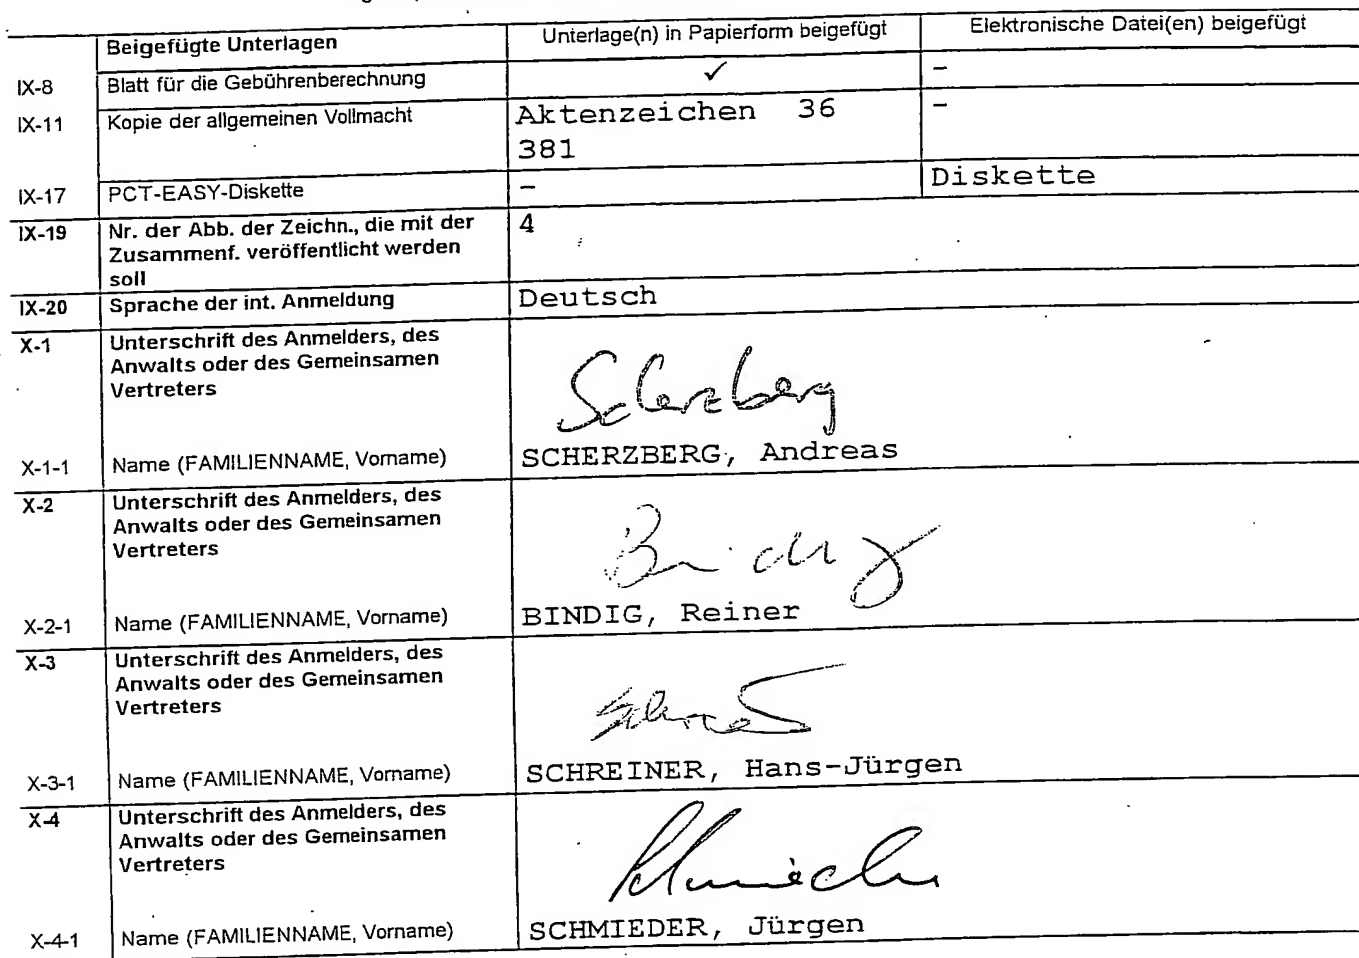 Beigefügte Unterlagen Unterlage(n) in Papierform beigefügt Elektronische Datei(en) beigefügt
IX-8 Blatt für die Gebührenberechnung ✓ –
IX-11 Kopie der allgemeinen Vollmacht Aktenzeichen 36 –
381
IX-17 PCT-EASY-Diskette – Diskette
IX-19 Nr. der Abb. der Zeichn., die mit der 4
Zusammenf. veröffentlicht werden
soll
IX-20 Sprache der int. Anmeldung Deutsch
X-1 Unterschrift des Anmelders, des
Anwalts oder des Gemeinsamen
Vertreters
Scherzberg
X-1-1 Name (FAMILIENNAME, Vorname) SCHERZBERG, Andreas
X-2 Unterschrift des Anmelders, des
Anwalts oder des Gemeinsamen
Vertreters
X-2-1 Name (FAMILIENNAME, Vorname) BINDIG, Reiner
X-3 Unterschrift des Anmelders, des
Anwalts oder des Gemeinsamen
Vertreters
X-3-1 Name (FAMILIENNAME, Vorname) SCHREINER, Hans-Jürgen
X-4 Unterschrift des Anmelders, des
Anwalts oder des Gemeinsamen
Vertreters
X-4-1 Name (FAMILIENNAME, Vorname) SCHMIEDER, Jürgen